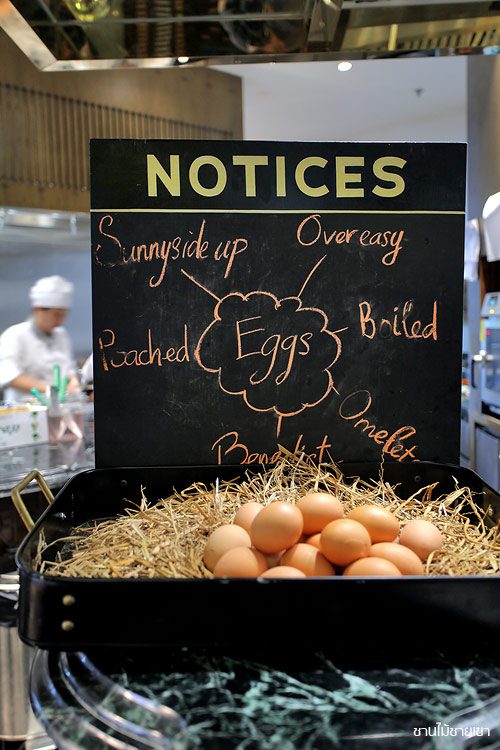 NOTICES
Sunnyside up
Over easy
Poached
Eggs
Boiled
Omelet
Benedist
ชานไม้ชายเขา